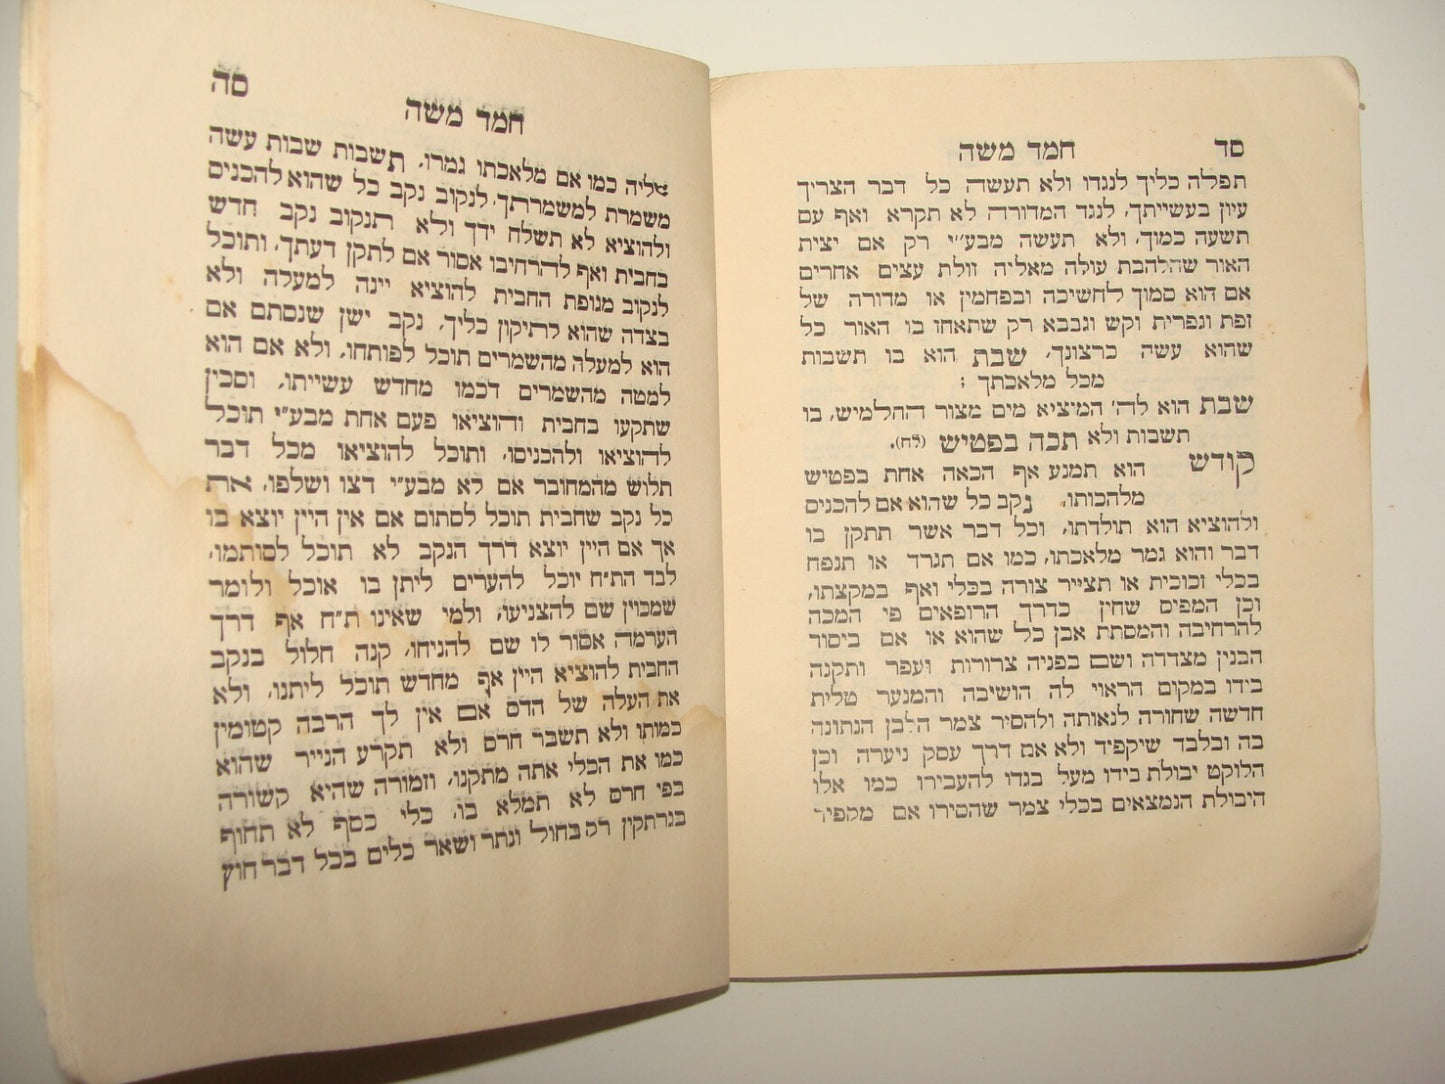 סד
חמד משה
תפלה כליך לנגדו ולא תעשה כל דבר הצריך
עיון בעשייתך, לנגד המדורה לא תקרא ואף עם
תשעה כמוך, ולא תעשה מבע״י רק אם יצית
האור שהלהבת עולה מאליה זולת עצים אחרים
אם הוא סמוך לחשיכה ובפחמין או מדורה של
זפת וגפרית וקש וגבבא רק שתאחז בו האור כל
שהוא עשה כרצונך, שבת הוא בו תשבות
מכל מלאכתך :
שבת הוא לה׳ המיציא מים מצור החלמיש, בו
תשבות ולא תכה בפטיש (לח).
קודש הוא תמנע אף הכאה אחת בפטיש
מלהכותו, נקב כל שהוא אם להכניס
ולהוציא הוא תולדתו, וכל דבר אשר תתקן בו
דבר והוא גמר מלאכתו, כמו אם תגרד או תנפח
בכלי זכוכית או תצייר צורה בכלי ואף במקצתו,
וכן המפיס שחין כדרך הרופאים פי המכה
להרחיבה והמסתת אבן כל שהוא או אם ביסוד
הבנין מצדדה ושם בפניה צרורות ועפר ותקנה
בידו במקום הראוי לה הושיבה והמנער טלית
חדשה שחורה לנאותה ולהסיר צמר הלבן הנתונה
בה ובלבד שיקפיד ולא אם דרך עסק ניערה וכן
הלוקט יבולת בידו מעל בגדו להעבירו כמו אלו
היבולת הנמצאים בכלי צמר שהסירו אם מקפיד
סה
חמד משה
אליה כמו אם מלאכתו גמרו, תשבות שבות עשה
משמרת למשמרתך, לנקוב נקב כל שהוא להכניס
ולהוציא לא תשלח ידך ולא תנקוב נקב חדש
בחבית ואף להרחיבו אסור אם לתקן דעתך, ותוכל
לנקוב מגופת החבית להוציא יינה למעלה ולא
בצדה שהוא לתיקון כליך, נקב ישן שנסתם אם
הוא למעלה מהשמרים תוכל לפותחו, ולא אם הוא
למטה מהשמרים דכמו מחדש עשייתו, וסכין
שתקעו בחבית והוציאו פעם אחת מבע״י תוכל
להוציאו ולהכניסו, ותוכל להוציאו מכל דבר
תלוש מהמחובר אם לא מבע״י דצו ושלפו, את
כל נקב שחבית תוכל לסתום אם אין היין יוצא בו
אך אם היין יוצא דרך הנקב לא תוכל לסותמו,
לבד הת״ח יוכל להערים ליתן בו אוכל ולומר
שמכוין שם להצניעו, ולמי שאינו ת״ח אף דרך
הערמה אסור לו שם להניחו, קנה חלול בנקב
החבית להוציא היין אף מחדש תוכל ליתנו, ולא
את העלה של הדס אם אין לך הרבה קטומין
כמותו ולא תשבר חרס ולא תקרע הנייר שהוא
כמו את הכלי אתה מתקנו, וזמורה שהיא קשורה
בפי חרס לא תמלא בו, כלי כסף לא תחוף
בגרתקין רק בחול ונתר ושאר כלים בכל דבר חוץ